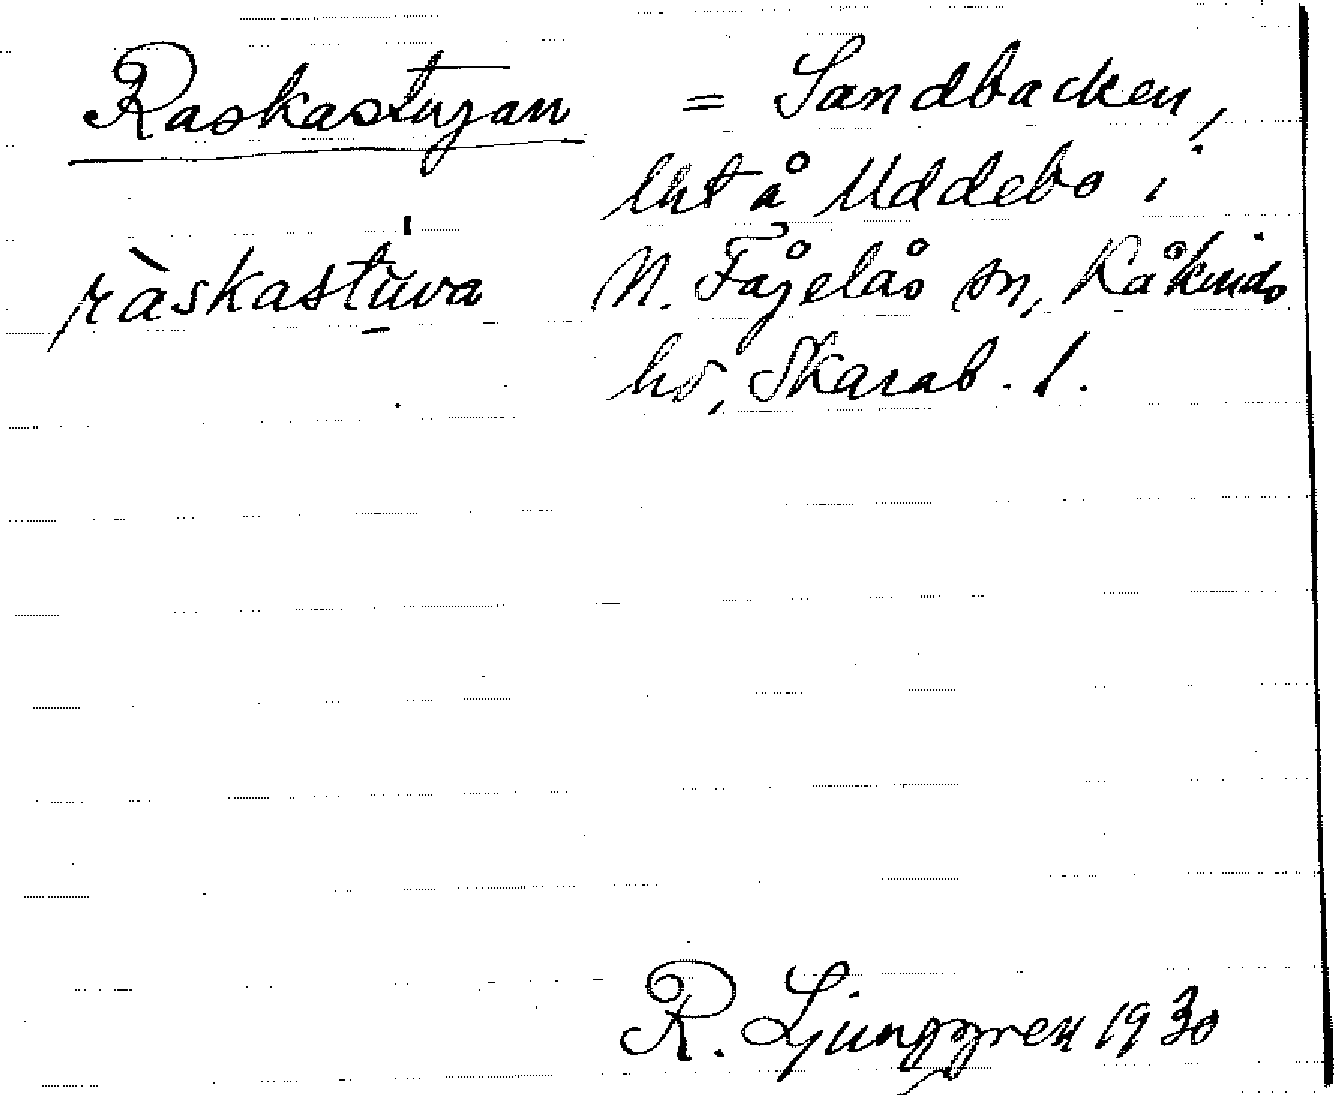 Raskastugan = Sandbacken,
lht å Uddebo i
ràskastu̱va N. Fågelås sn, Kåkinds
hd, Skarab. l.
R. Ljunggren 1930